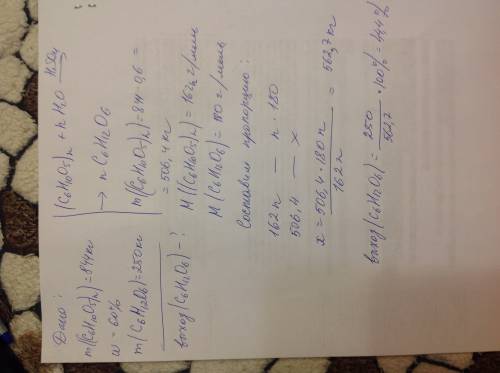 Дано:
m((C6H10O5)n) = 844 кг
w = 60%
m(C6H12O6) = 250 кг
выход (C6H12O6) - ?
(C6H10O5)n + n H2O H2SO4 →
→ n C6H12O6
m((C6H10O5)n) = 844 · 0,6 =
= 506,4 кг
M((C6H10O5)n) = 162n г/моль
M(C6H12O6) = 180 г/моль
Составим пропорцию:
162n — n · 180
506,4 — x
x = 506,4 · 180n / 162n = 562,7 кг
выход (C6H12O6) = 250 / 562,7 · 100% = 44,4%